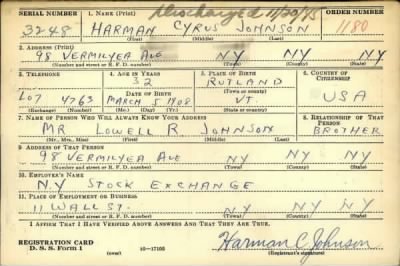 Discharged 11/20/45
SERIAL NUMBER 1. NAME (Print) ORDER NUMBER
3248 HARMAN CYRUS JOHNSON 1180
(First) (Middle) (Last)
2. ADDRESS (Print)
98 VERMILYEA AVE NY NY
(Number and street or R. F. D. number) (Town) (County) (State)
3. TELEPHONE 4. AGE IN YEARS 5. PLACE OF BIRTH 6. COUNTRY OF CITIZENSHIP
32 RUTLAND
DATE OF BIRTH (Town or county)
LO7 4763 MARCH 5 1908 VT. USA
(Exchange) (Number) (Mo.) (Day) (Yr.) (State or country)
7. NAME OF PERSON WHO WILL ALWAYS KNOW YOUR ADDRESS 8. RELATIONSHIP OF THAT PERSON
MR LOWELL R JOHNSON BROTHER
(Mr., Mrs., Miss) (First) (Middle) (Last)
9. ADDRESS OF THAT PERSON
98 VERMILYEA AVE NY NY NY
(Number and street or R. F. D. number) (Town) (County) (State)
10. EMPLOYER'S NAME
N.Y STOCK EXCHANGE
11. PLACE OF EMPLOYMENT OR BUSINESS
11 WALL ST. NY NY NY
(Number and street or R. F. D. number) (Town) (County) (State)
I AFFIRM THAT I HAVE VERIFIED ABOVE ANSWERS AND THAT THEY ARE TRUE.
REGISTRATION CARD
D. S. S. Form 1 (over) 16-17105 Harman C Johnson
(Registrant's signature)